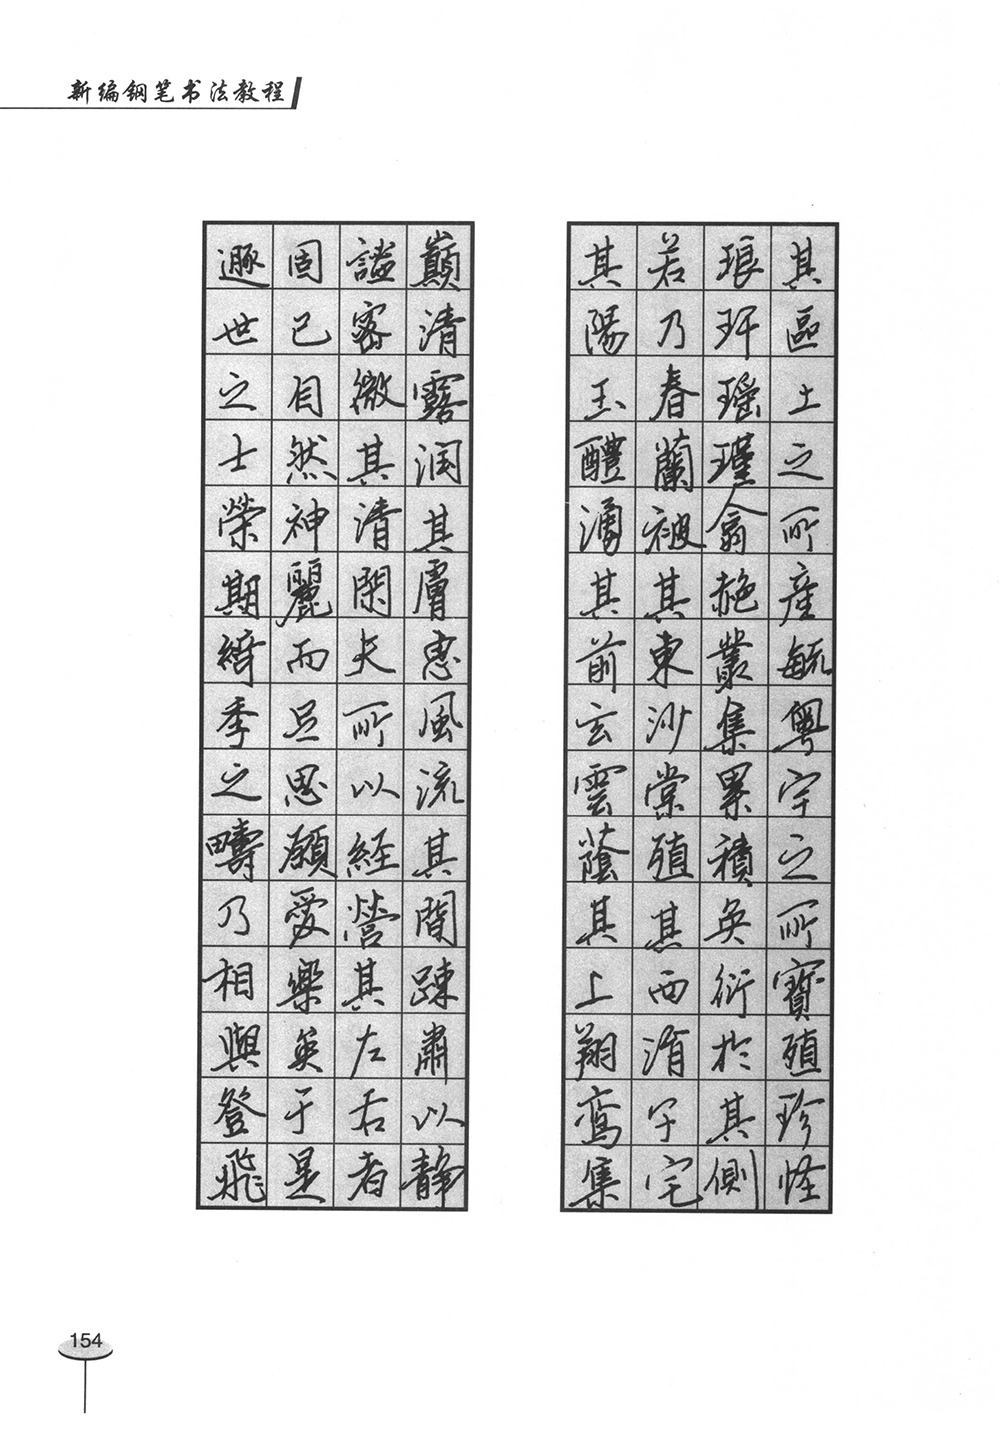 新编钢笔书法教程
其區土之所產毓粵宇之所寶殖珍怪
琅玕瑶瑾翕赩叢集累積奂衍於其側
若乃春蘭被其東沙棠殖其西涓子宅
其陽玉醴涌其前玄雲蔭其上翔鸾集
巔清露润其膚惠風流其間踈肅以静
謐密微其清閑夫所以經營其左右者
固已自然神麗而足思願愛樂矣于是
遯世之士榮期綺季之疇乃相與登飛
154